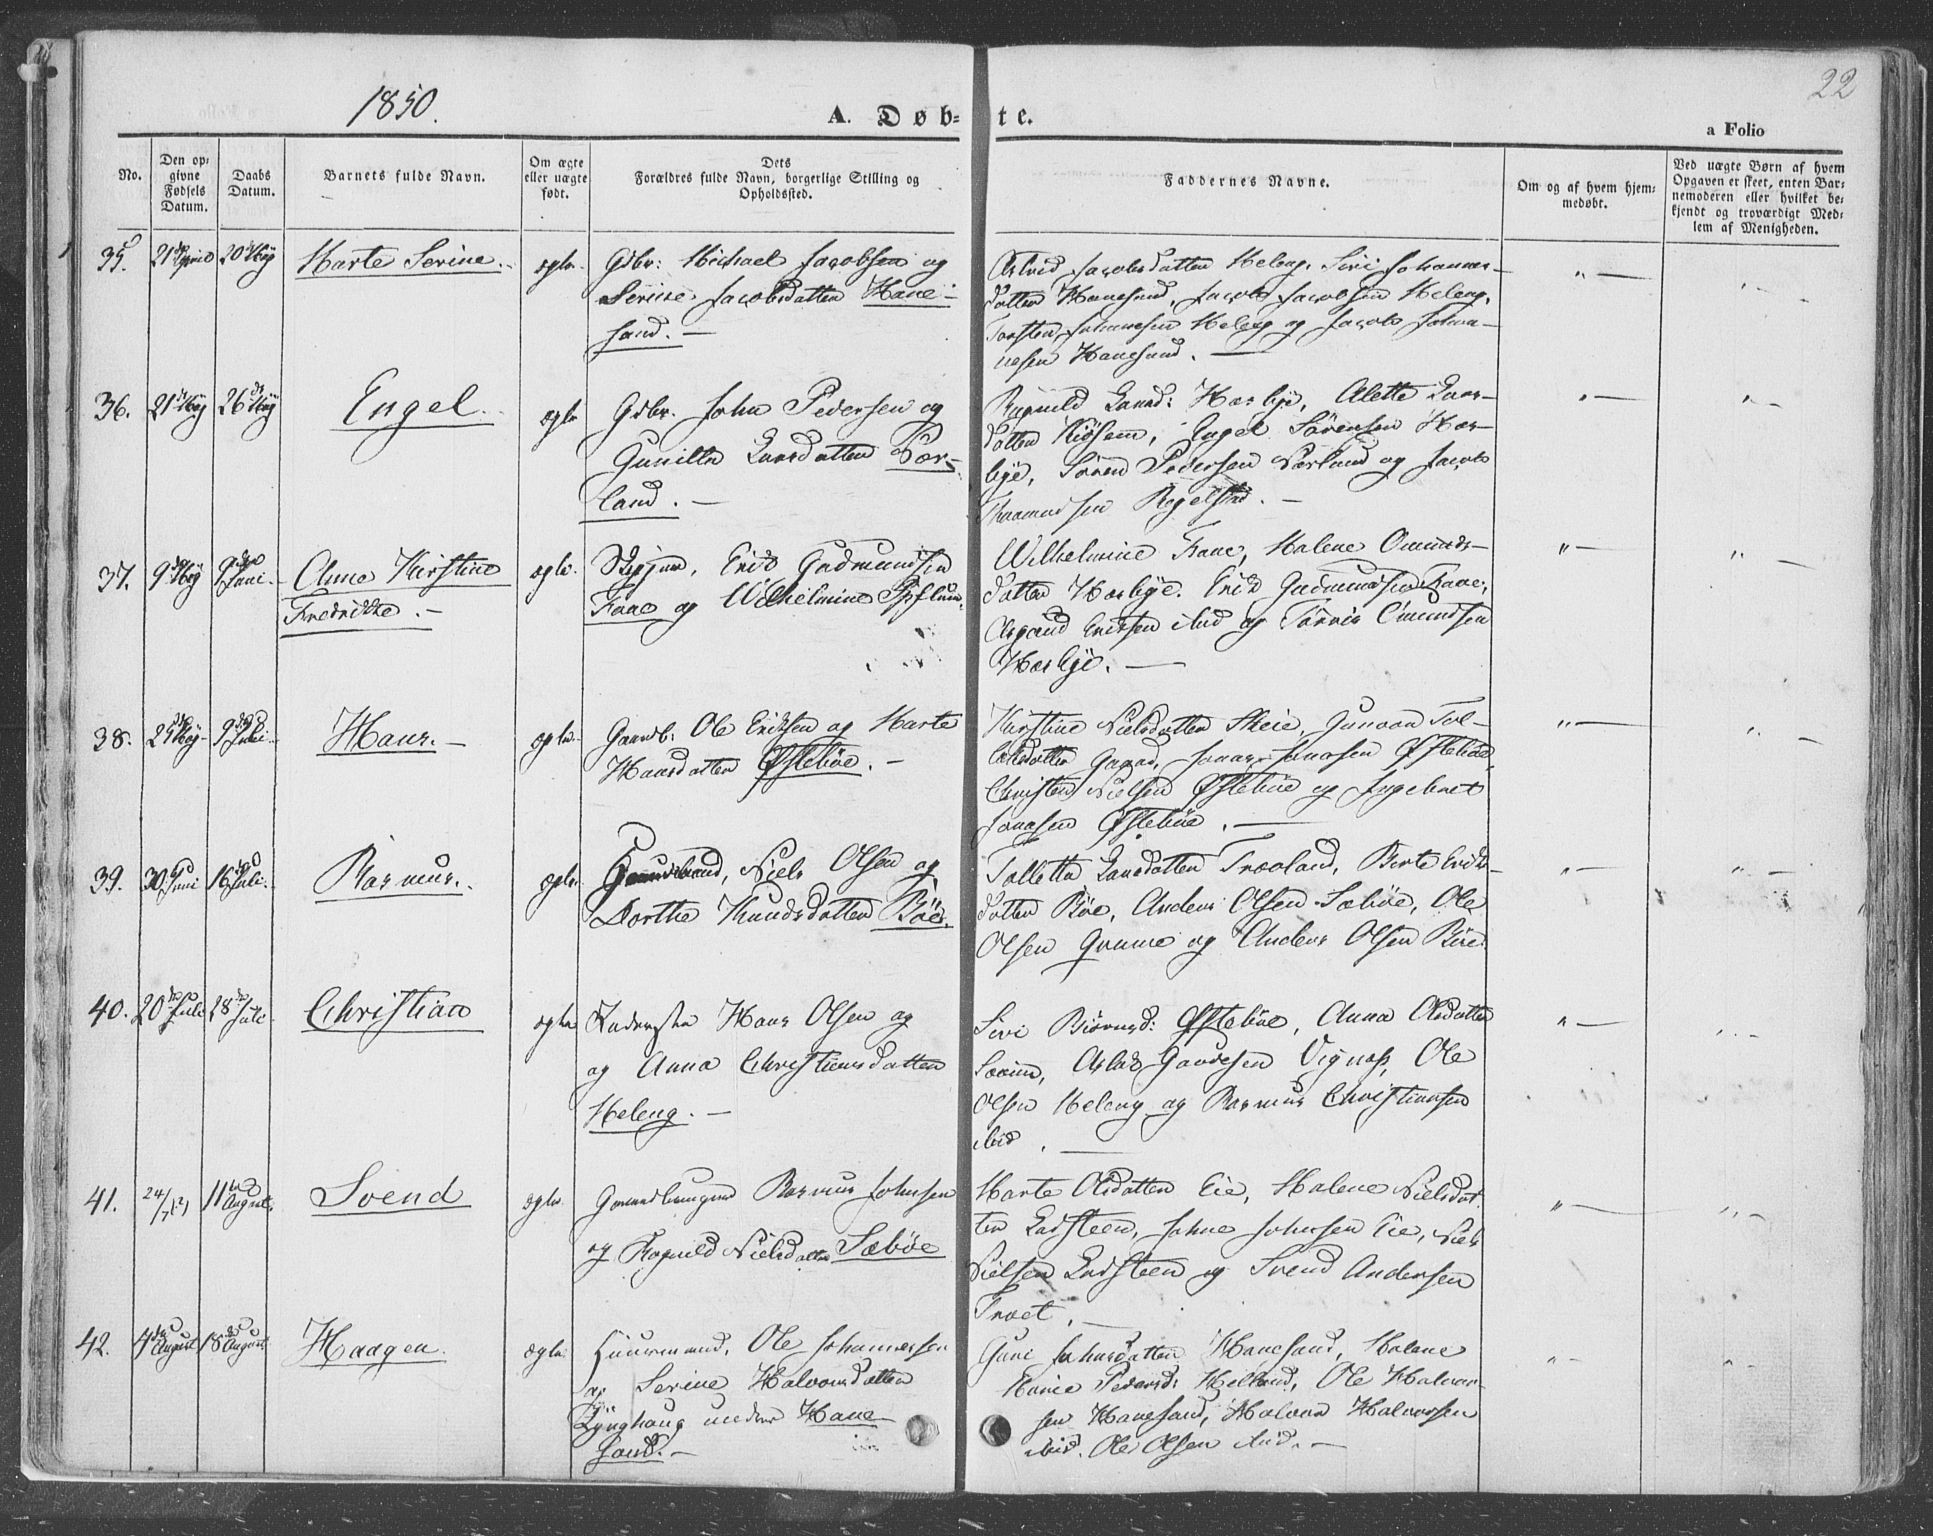 1850.
22
A. Døb=
te.
a Folio
No.
Den op=
givne
Fødsels
Datum.
Daabs
Datum.
Barnets fulde Navn.
Om ægte
eller uægte
født.
Dets
Forældres fulde Navn, borgerlige Stilling og
Opholdssted.
Faddernes Navne.
Om og af hvem hjem=
medøbt.
Ved uægte Børn af hvem
Opgaven er skeet, enten Bar=
nemoderen eller hvilket be=
kjendt og troværdigt Med=
lem af Menigheden.
35. 21 April 20 Maj Marte Serine. ægte. Gdbr: Michael Jacobsen og
Serine Jacobsdatter Hane-
sand. —
Astrid Jacobsdatter Heleng, Siri Johannes-
datter Hanesand, Jacob Jacobsen Heleng,
Torsten Johannesen Heleng og Jacob Johan-
nesen Hanesand. —
36. 21 Maj 26 Maj Engel. ægte Gdbr. John Pedersen og
Gunilla Larsdatter Vær-
land. —
Ragnild Larsd: Hasbye, Alette Lars-
datter Kiøsem, Engel Sørensen Has-
bye, Søren Pedersen Værland og Jacob
Rasmussen Regelstad. —
37. 9 Maj 9 Juni. Anne Kirstine
Fredrikke. — ægte. Erik Gudmundsen
Faae og Wilhelmine
Wilhelmine Faae, Malene Omunds-
datter Hasbye. Erik Gudmundsen Faae,
Eriksen ibid og Tørris Omundsen
Hasbye. —
38. 25 Maj 9 Juli. Hans. — ægte. Gaardb: Ole Eriksen og Marte
Hansdatter Østebøe. —
Kirstine Nielsdatter Skeie, Gunvor Tol-
leksdatter Gaard, Jonas Jonasen Østebøe,
Christen Nielsen Østebøe og Ingebret
Jonasen Østebøe. —
39. 30 Juni 16 Juli. Rasmus. ægte. Gaardbrund, Niels Olsen og
Dorthe Knudsdatter Bøe.
Tolletta Larsdatter Træeland, Berte Eriks-
datter Bøe, Anders Olsen Sæbøe, Ole
Olsen og Anders Olsen Bøe.
40. 20 Juli 28 Juli. Christian ægte Hans Olsen og
og Anna Christiansdatter
Heleng. —
Siri Biørnsd: Østebøe, Anna Olsdatter
Aslak Gautesen Vignæs, Ole
Olsen Heleng og Rasmus Christiansen
ibid. —
41. 24/7 11 August. Svend ægte Rasmus Johnsen
og Ragnild Nielsdatter Sæbøe
Marte Olsdatter Eie, Malene Nielsdat-
ter Ladsteen, Johne Johnsen Eie, Niels
Nielsen Ladsteen og Svend Andersen
Troet. —
42. 4 August 18 August Haagen. ægte. Huusmand, Ole Johannessen
og Serine Halvorsdatter
Lynghaug under Hane-
sand. —
Guri Johnsdatter Hanesand, Malene
Marie Pedersd: Helland, Ole Halvor-
sen Hanesand, Halvor Halvorsen
ibid. Ole Olsen ibid. —